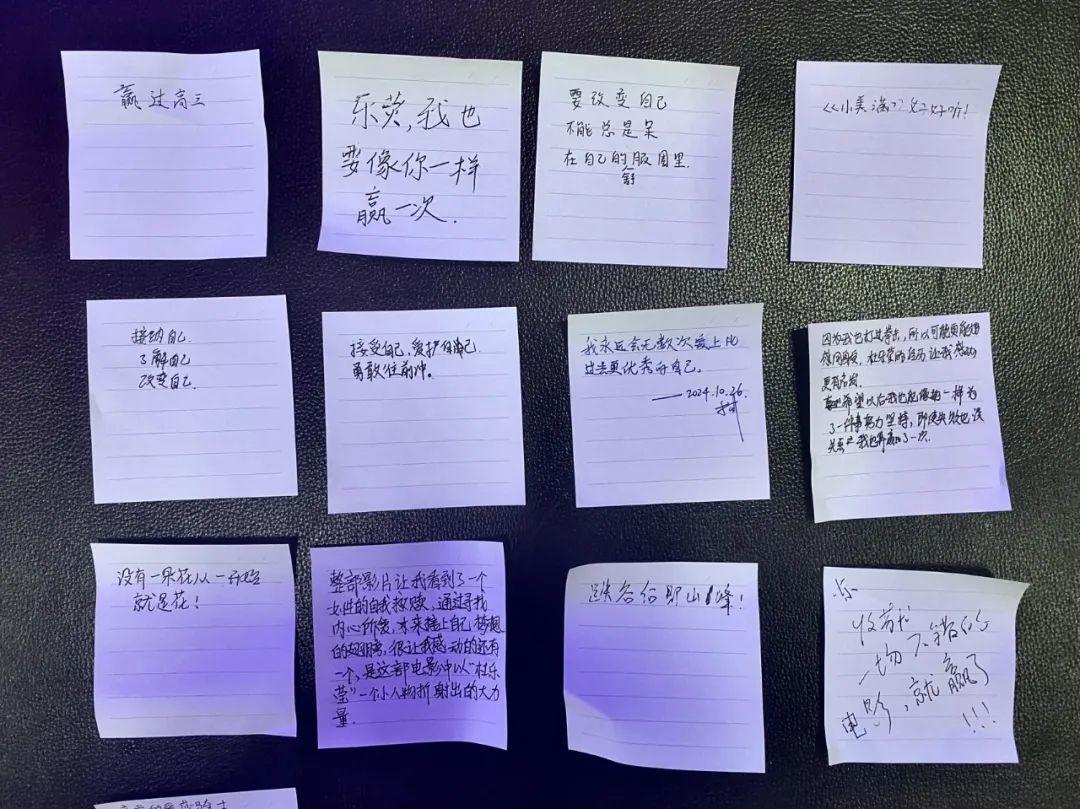 赢过高三
乐莹,我也
要像你一样
赢一次.
要改变自己
不能总是呆
在自己的舒服圈里.
《小美满》好好听!
接纳自己
了解自己
改变自己.
接受自己,爱护自己
勇敢往前冲。
我永远会无数次爱上比
过去更优秀的自己。
——2024.10.26.
因为我也打过拳击,所以可能更能
杜乐莹的经历让我感动
更有
希望以后我也能像她一样为
了一件事努力坚持,即使失败也没
关系,我也算赢了一次.
没有一朵花从一开始
就是花!
整部影片让我看到了一个
女性的自我救赎,通过寻找
内心所爱,才来接上自己梦想
的翅膀,很让我感动的还有
一个,是这部电影中以“杜乐
莹”一个小人物折射出的大力
量.
跌谷后即山峰!
乐
收获
一场不错的
电影,就赢了
!!!